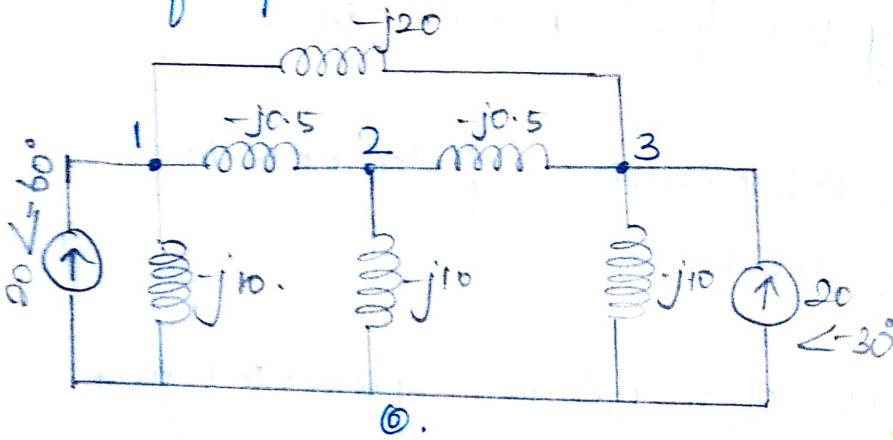 -j20
-j0.5
-j0.5
1
2
3
20 ∠-60°
-j10.
-j10
-j10
20
∠-30°
⓪.